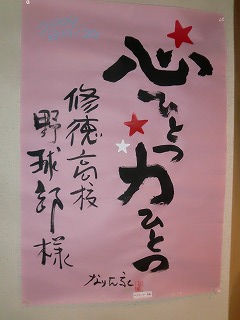 心ひとつ
力ひとつ
修徳高校
野球部様